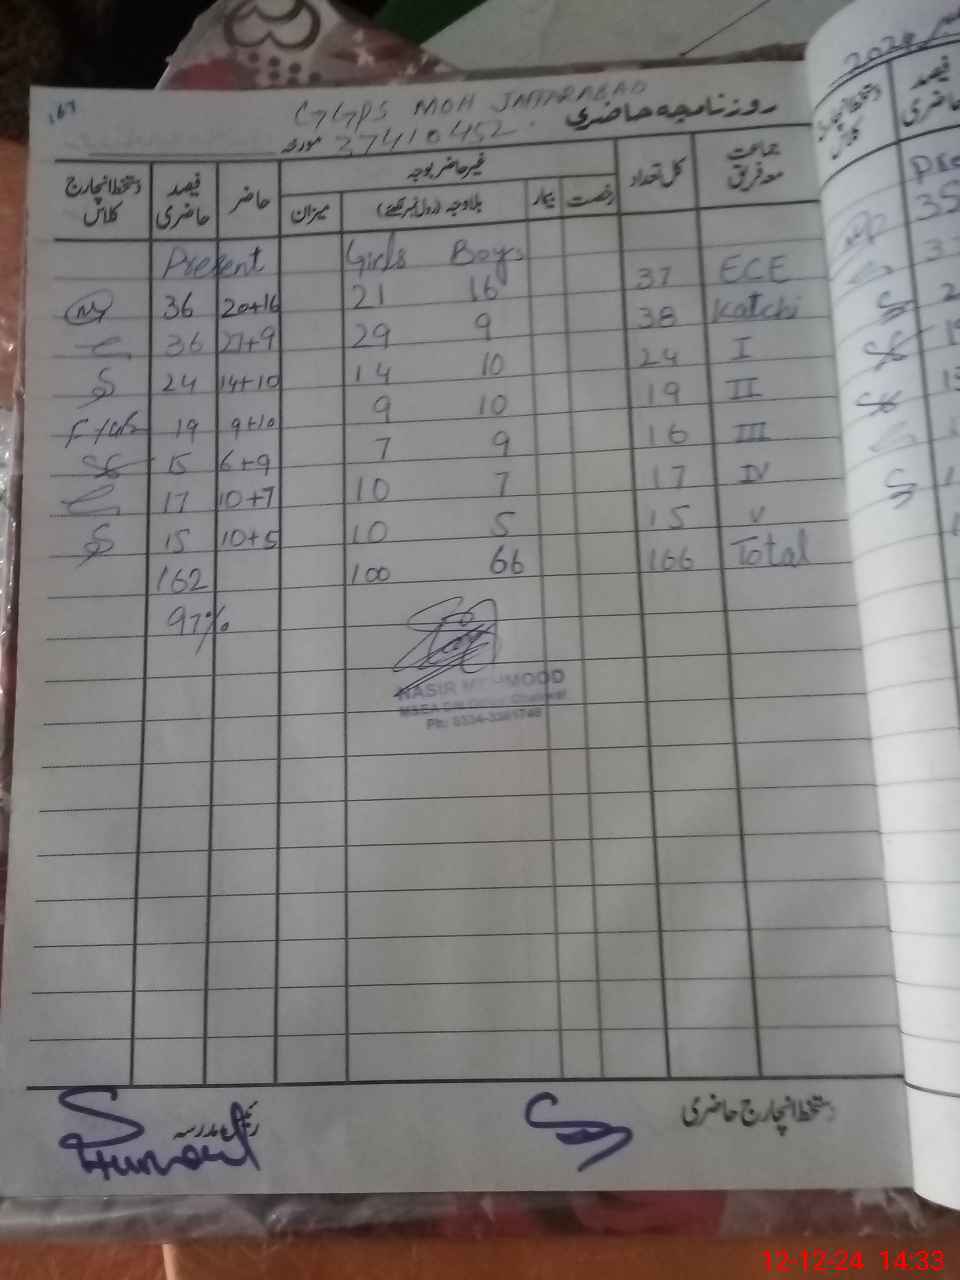 167
GGPS MOH JAFFARABAD
روزنامچہ حاضری
مورخہ 37410452
جماعت معہ فریق
کل تعداد
غیر حاضر بوجہ
رخصت
بیمار
بلا وجہ (رول نمبر لکھیے)
میزان
حاضر
فیصد حاضری
دستخط انچارج کلاس
Present Girls Boys
36 20+16 21 16 37 ECE
36 27+9 29 9 38 Katchi
24 14+10 14 10 24 I
19 9+10 9 10 19 II
15 6+9 7 9 16 III
17 10+7 10 7 17 IV
15 10+5 10 5 15 V
162 100 66 166 Total
97%
NASIR MEHMOOD
دستخط انچارج حاضری
مدرسہ
2024
فیصد حاضری
دستخط انچارج کلاس
35
12-12-24 14:33